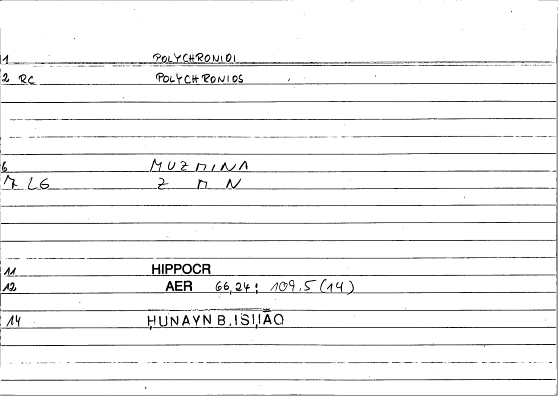 1 POLYCHRONIOI
2 RC POLYCHRONIOS
6 MUZMINA
7 LG Z M N
11 HIPPOCR
12 AER 66,24: 109.5 (14)
14 ḤUNAYN B. ISḤĀQ